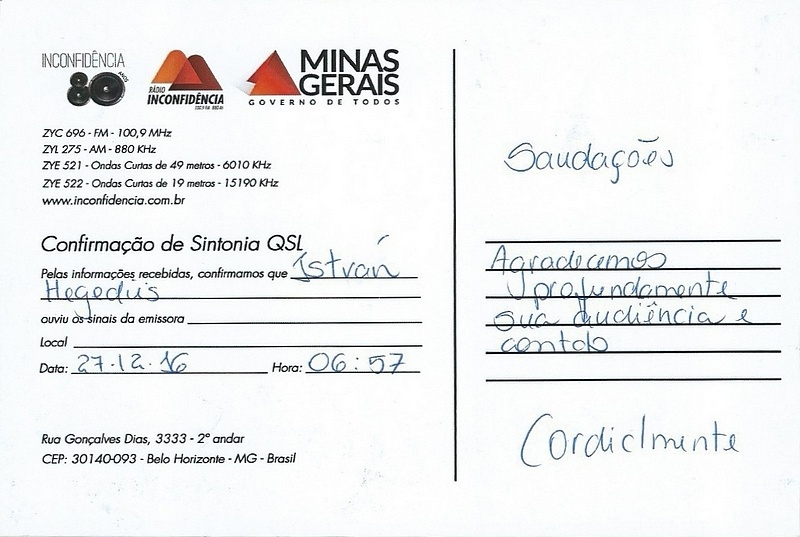 INCONFIDÊNCIA
80 ANOS
RÁDIO
INCONFIDÊNCIA
100,9 FM 880 AM
MINAS
GERAIS
GOVERNO DE TODOS
ZYC 696 - FM - 100,9 MHz
ZYL 275 - AM - 880 KHz
ZYE 521 - Ondas Curtas de 49 metros - 6010 KHz
ZYE 522 - Ondas Curtas de 19 metros - 15190 KHz
www.inconfidencia.com.br
Confirmação de Sintonia QSL
Pelas informações recebidas, confirmamos que István
Hegedüs
ouviu os sinais da emissora
Local
Data: 27.12.16 Hora: 06:57
Rua Gonçalves Dias, 3333 - 2º andar
CEP: 30140-093 - Belo Horizonte - MG - Brasil
Saudações
Agradecemos
profundamente
sua audiência e
contato
Cordialmente